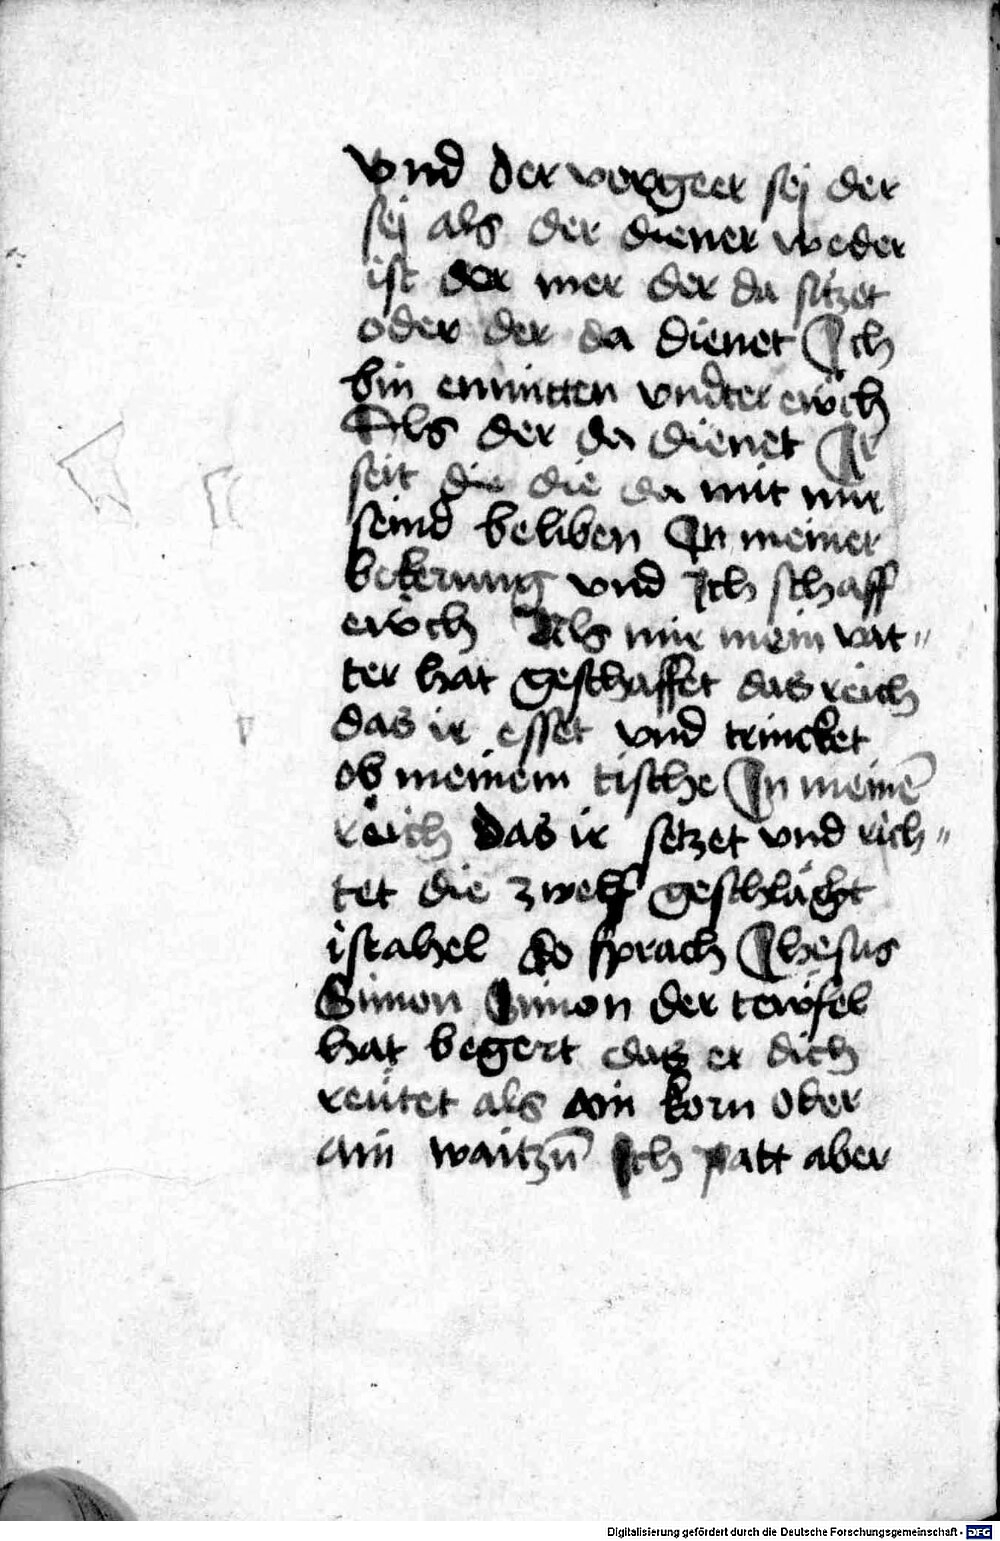 vnd der vorgeer sej der
sej als der diener weder
ist der mer der da sitzet
oder der da dienet Ich
bin enmitten vndter ewch
Als der da dienet Ir
seit die die da mit mir
seind beliben In meiner
bekerung vnd Ich schaff
ewch Als mir mein vat„
ter hat geschaffet das reich
das ir esset vnd trincket
ob meinem tische In meinē
reich das ir setzet vnd rich„
tet die zwelf geschlächt
israhel do sprach Ihesus
Simon Simon der tewfel
hat begert das er dich
reütet als ain korn oder
ain waitzn̄ Ich patt aber
Digitalisierung gefördert durch die Deutsche Forschungsgemeinschaft - DFG